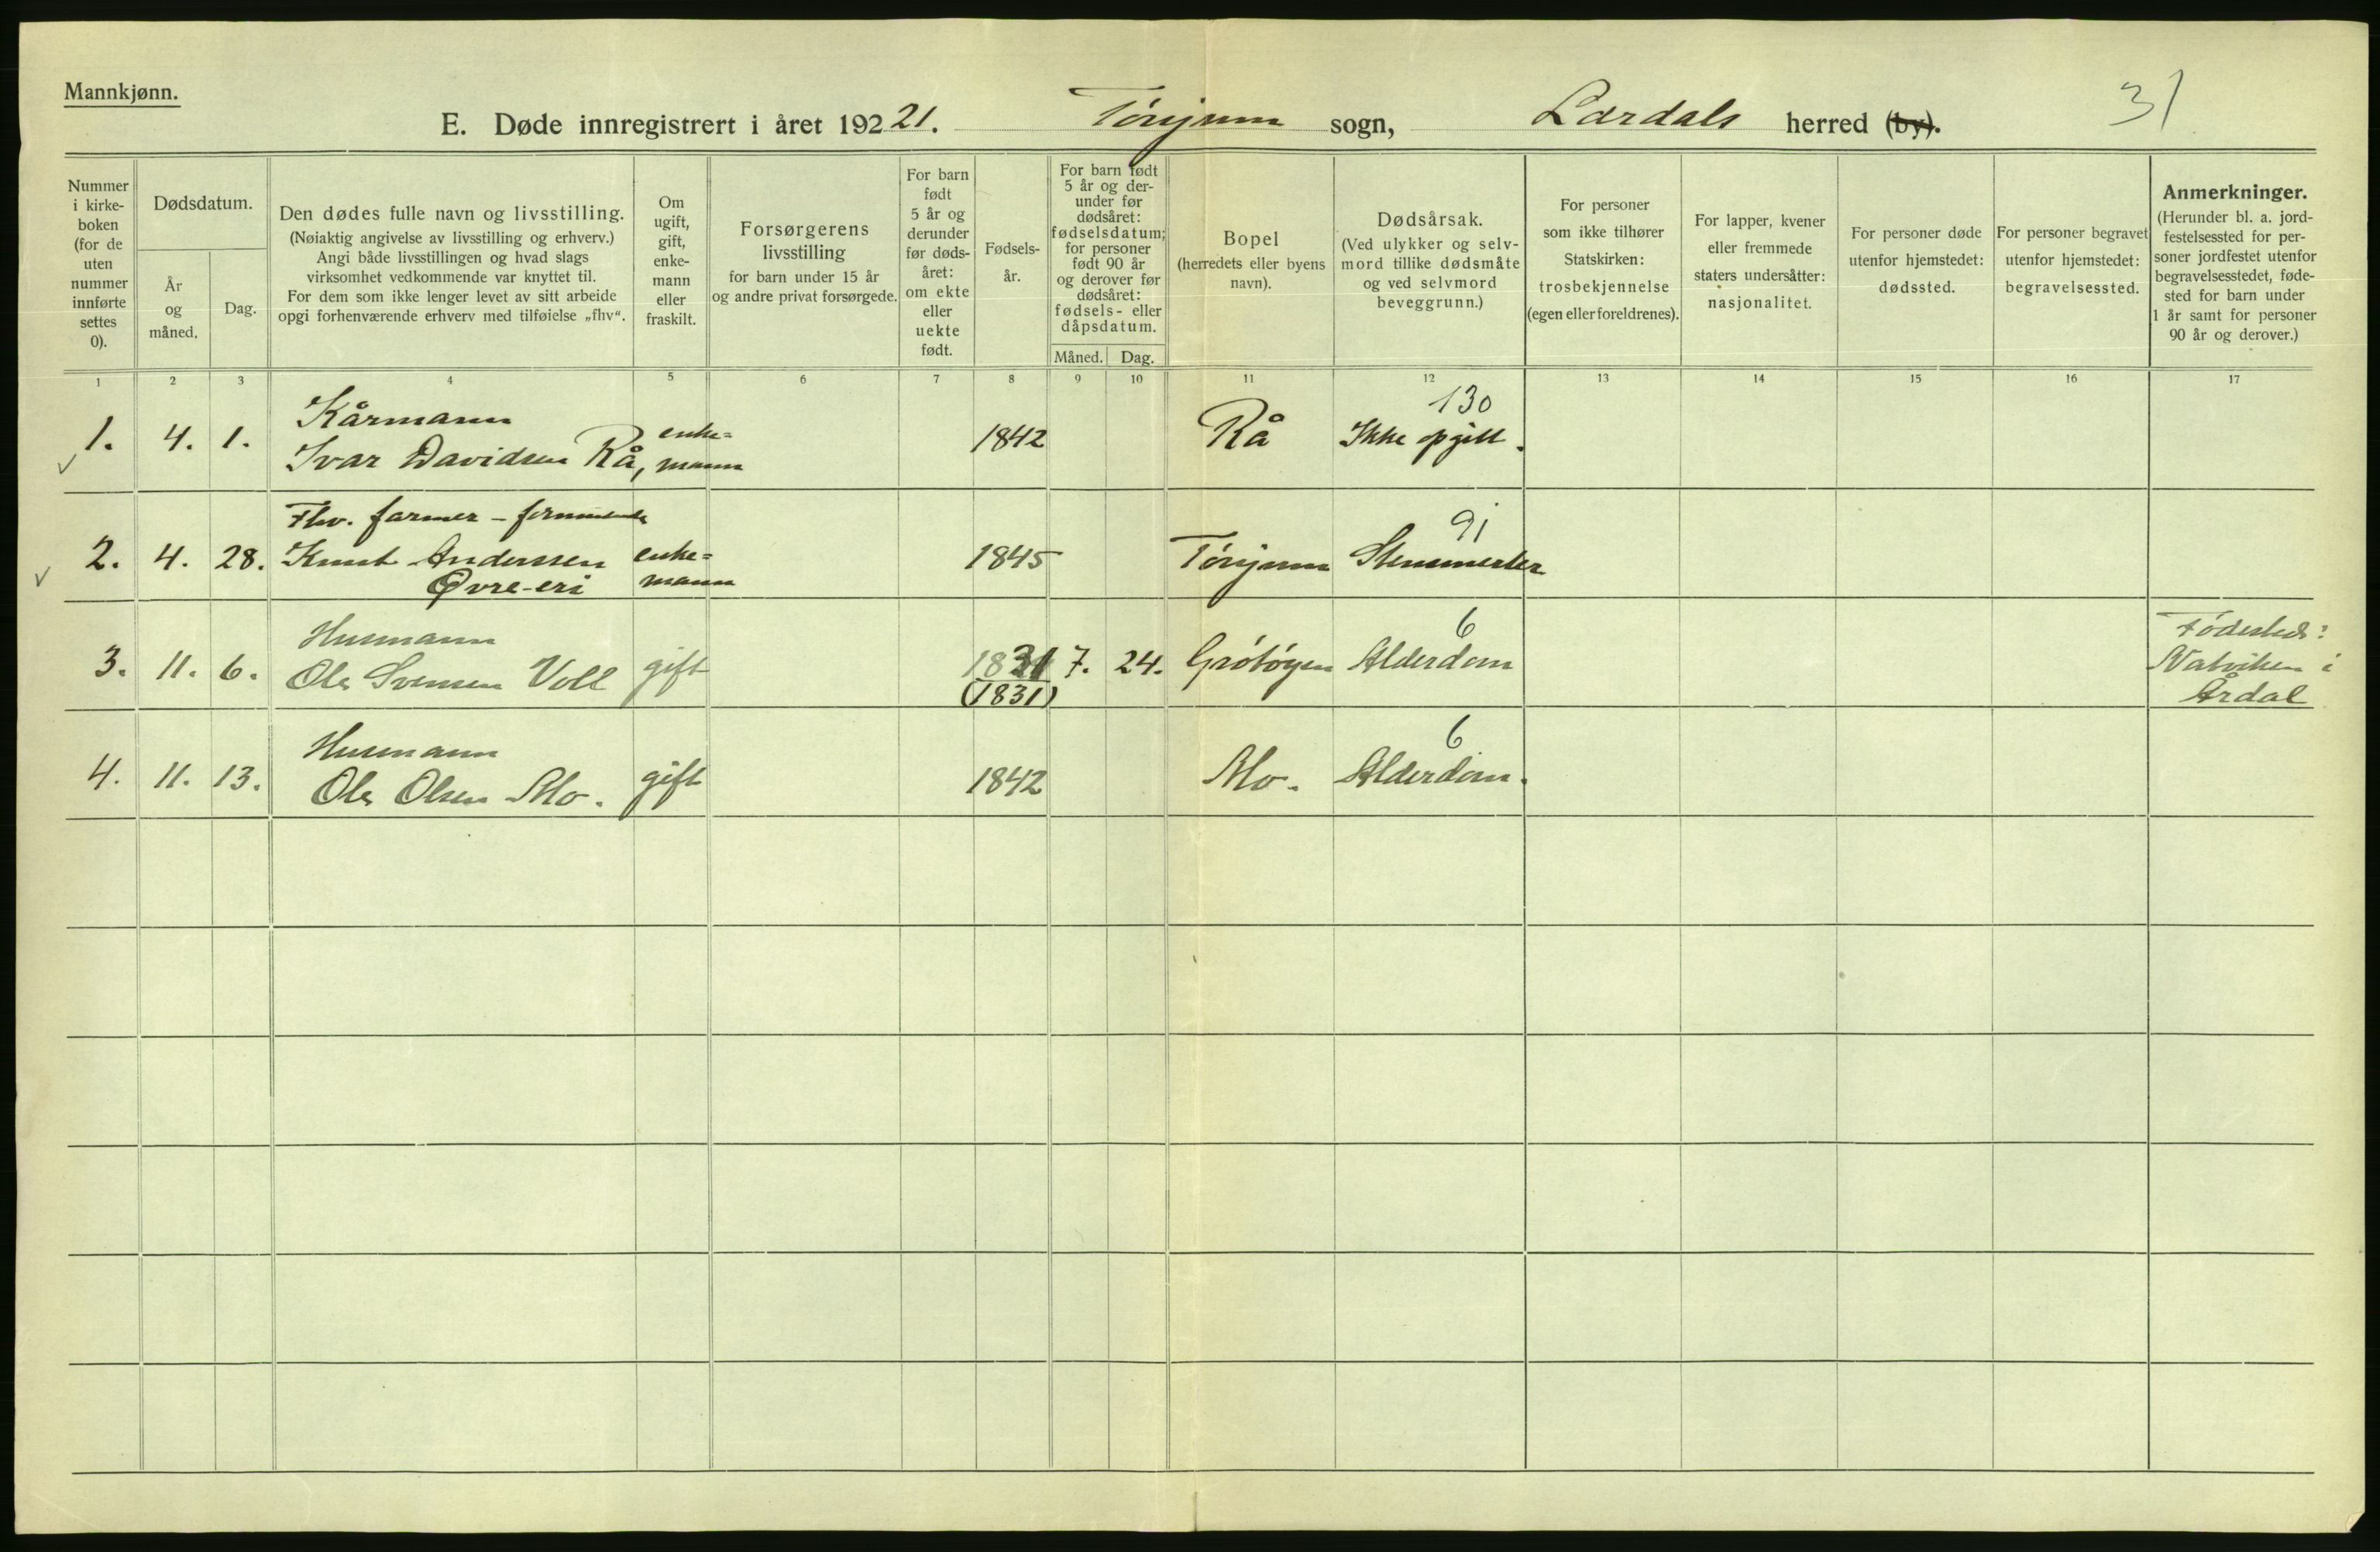 Mannkjønn.
31
E. Døde innregistrert i året 192 21. Tønjum sogn, Lærdals herred (by).
Nummer i kirke-boken (for de uten nummer innførte settes 0).
Dødsdatum.
År og måned.
Dag.
Den dødes fulle navn og livsstilling.
(Nøiaktig angivelse av livsstilling og erhverv.)
Angi både livsstillingen og hvad slags
virksomhet vedkommende var knyttet til.
For dem som ikke lenger levet av sitt arbeide
opgi forhenværende erhverv med tilføielse „fhv“.
Om ugift, gift, enke-mann eller fraskilt.
Forsørgerens
livsstilling
for barn under 15 år
og andre privat forsørgede.
For barn født 5 år og derunder før døds-året: om ekte eller uekte født.
Fødsels-år.
For barn født
5 år og der-
under før
dødsåret:
fødselsdatum;
for personer
født 90 år
og derover før
dødsåret:
fødsels- eller
dåpsdatum.
Måned. Dag.
Bopel
(herredets eller byens
navn).
Dødsårsak.
(Ved ulykker og selv-
mord tillike dødsmåte
og ved selvmord
beveggrunn.)
For personer
som ikke tilhører
Statskirken:
trosbekjennelse
(egen eller foreldrenes).
For lapper, kvener
eller fremmede
staters undersåtter:
nasjonalitet.
For personer døde
utenfor hjemstedet:
dødssted.
For personer begravet
utenfor hjemstedet:
begravelsessted.
Anmerkninger.
(Herunder bl. a. jord-
festelsessted for per-
soner jordfestet utenfor
begravelsesstedet, føde-
sted for barn under
1 år samt for personer
90 år og derover.)
1 2 3 4 5 6 7 8 9 10 11 12 13 14 15 16 17
Kårmann 130
1. 4. 1. Ivar Davidsen Rå, enke= mann 1842 Rå Ikke opgitt.
Fhv. farmer - 91
2. 4. 28. Knut Anderssen enke= mann 1845 Tønjum
Øvre-eri
Husmann 6 Fødested:
3. 11. 6. Ole Svensen Voll gift 1831 7. 24. Grøtøyen Alderdom Natviken i
(1831) Årdal
Husmann 6
4. 11. 13. Ole Olsen Mo. gift 1842 Mo. Alderdom.